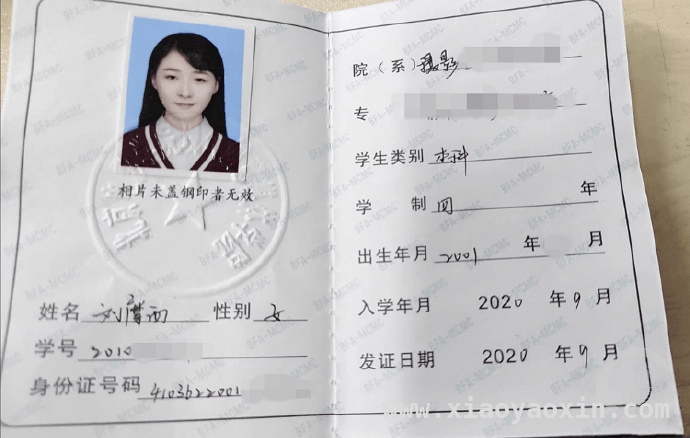 相片未盖钢印者无效
北京
姓名 刘 西 性别 女
学号 2010
身份证号码 4103622001
院（系） 摄影
专
学生类别 本科
学 制 四 年
出生年月 2001 年 月
入学年月 2020 年 9 月
发证日期 2020 年 9 月
BFA-MCMC
www.xiaoyaoxin.com